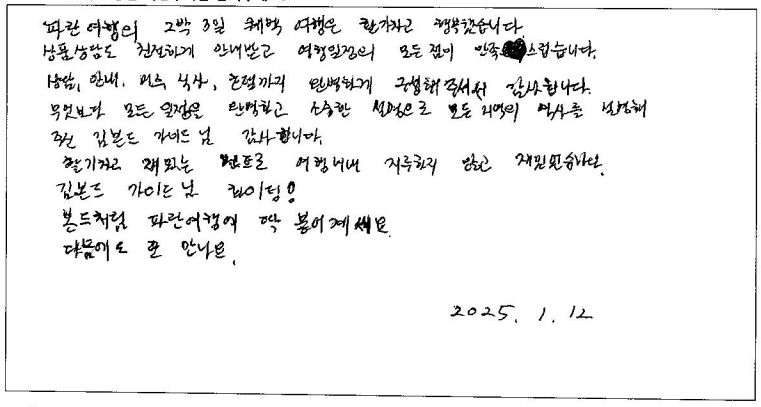 파란여행의 2박 3일 퀘벡 여행은 활기차고 행복했습니다.
상품상담도 친절하게 안내받고 여행일정의 모든 점이 만족스럽습니다.
상담, 안내, 버스, 식사, 호텔까지 완벽하게 구성해주셔서 감사합니다.
무엇보다 모든 일정을 완벽하고 소중한 설명으로 모든 지역의 역사를 설명해
주신 김본드 가이드님 감사합니다.
활기차고 재밌는 멘트로 여행내내 지루하지 않고 재밌었습니다.
김본드 가이드님 화이팅!
본드처럼 파란여행에 딱 붙어계세요.
다음에도 또 만나요.
2025. 1. 12